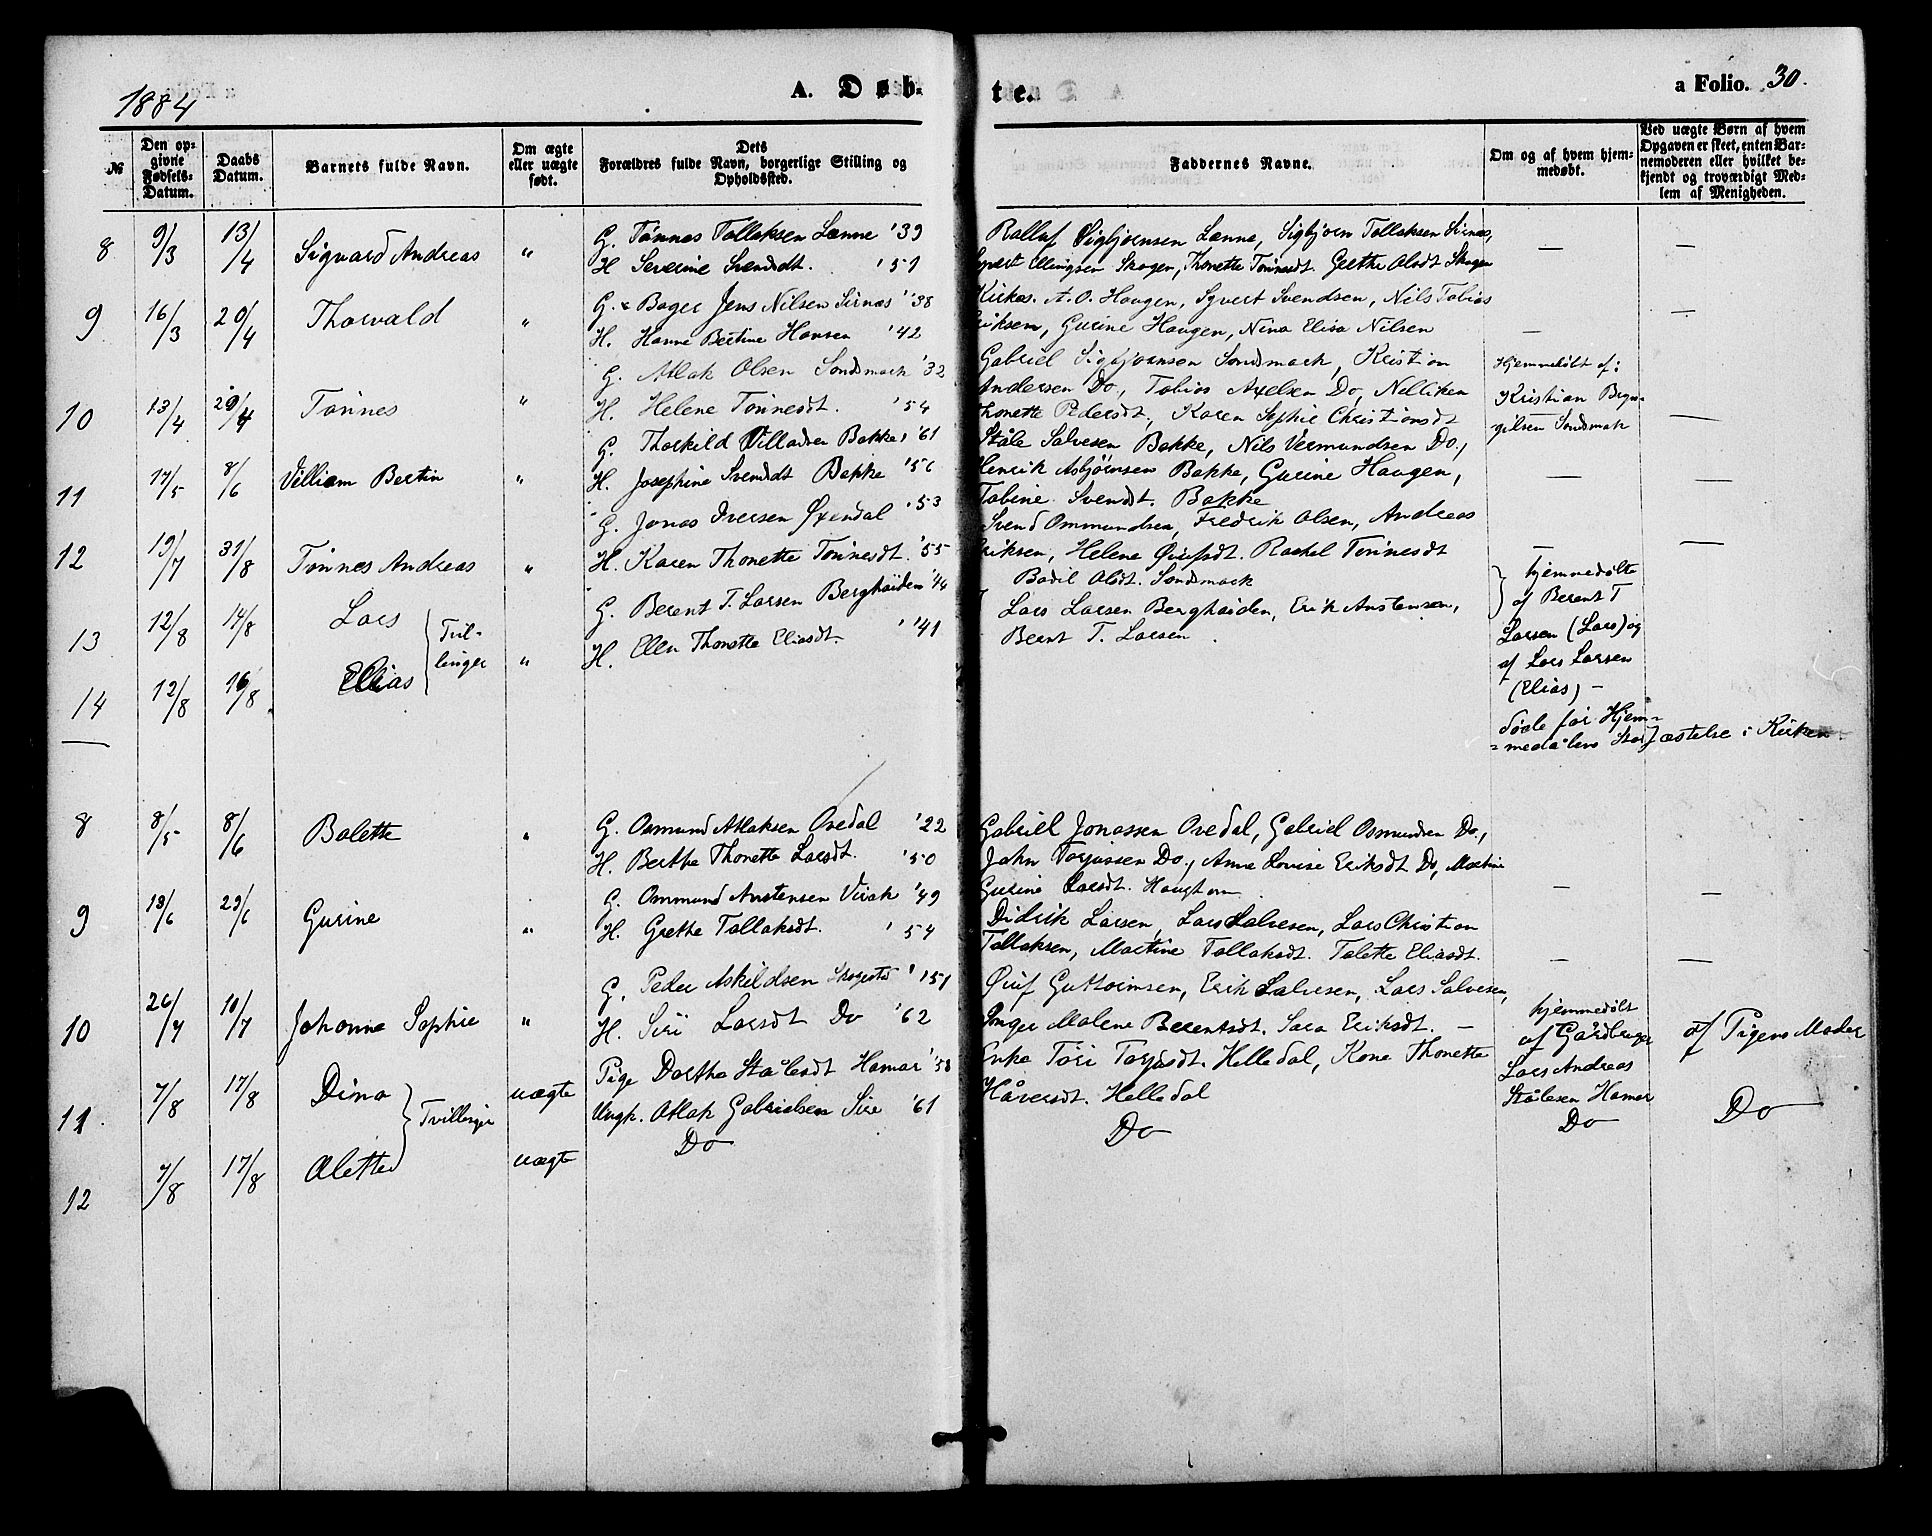 1884
A. Døb-
te.
a Folio. 30.
№
Den op-
givne
Fødsels-
Datum.
Daabs
Datum.
Barnets fulde Navn.
Om ægte
eller uægte
født.
Dets
Forældres fulde Navn, borgerlige Stilling og
Opholdssted.
Faddernes Navne.
Om og af hvem hjem-
medøbt.
Ved uægte Børn af hvem
Opgaven er skeet, enten Bar-
nemoderen eller hvilket be-
kjendt og troværdigt Med-
lem af Menigheden.
8 9/3 13/4 Sigvard Andreas "
G. Tønnes Tollaksen Lænne '39
H Severine Svendsdt. '51
Rolluf Sigbjørnsen Lænne, Sigbjørn Tollaksen Sirnæs,
Ellingsen Skogen, Thonette Tønnesdt. Grethe Olsdt Skogen
— —
9 16/3 20/4 Thorvald "
G. & Bager Jens Nilsen Sirnæs '38
H. Hanne Bertine Hansen '42
Kirkes. A. O. Haugen, Syvert Svendsen, Nils Tobias
Eriksen, Gurine Haugen, Nina Elisa Nilsen
— —
10 13/4 20/4 Tønnes "
G. Atlak Olsen Sondsmark '32
H. Helene Tønnesdt. '54
Gabriel Sigbjørnsen Sondsmark, Kristian
Andersen Do, Tobias Axelsen Do, Nelliken
Thonette Pedersdt, Karen Sophie Christiansdt
Hjemmedøbt af:
Kristian Bryn-
gilsen Sondsmark
—
11 17/5 8/6 Villiam Bertin "
G. Thorkild Villadsen Bakke '61
H. Josephine Svendsdt Bakke '56
Ståle Salvesen Bakke, Nils Vermundsen Do.,
Henrik Asbjørnsen Bakke, Gurine Haugen,
Tobine Svendsdt. Bakke
— —
12 19/7 31/8 Tønnes Andreas "
G. Jonas Iversen Øxendal '53
H. Karen Thonette Tønnesdt. '55
Svend Ommundsen, Fredrik Olsen, Andreas
Eriksen, Helene Øiufsdt. Rachel Tønnesdt
Bodil Olsdt. Sondsmark
— —
13 12/8 14/8 Lars
14 12/8 16/8 Elias
Tvil-
linger
"
G. Berent T. Larsen Berghøiden '40
H. Ellen Thonette Eliasdt. '41
Lars Larsen Berghøiden, Erik Austensen,
Bernt T. Larsen
hjemmedøbte
af Berent T
Larsen (Lars) og
af Lars Larsen
(Elias) —
døde før Hjem-
medåbens Stadfæstelse i Kirken
8 8/5 8/6 Bolette "
G. Osmund Atlaksen Ovedal '22
H. Berthe Thonette Larsdt. '50
Gabriel Jonassen Ovedal, Gabriel Osmundsen Do.,
John Torjussen Do., Anne Lovise Eriksdt Do, Martine
Gurine Larsdt. Haughom
— —
9 18/6 29/6 Gurine "
G. Ommund Austensen Virak '49
H. Grethe Tollaksdt. '54
Didrik Larsen, Lars Salvesen, Lars Christian
Tollaksen, Martine Tollaksdt. Tolette Eliasdt.
— —
10 26/4 10/7 Johanne Sophie "
G. Peder Askildsen '51
H. Siri Larsdt Do '62
Øiuf Guttormsen, Erik Salvesen, Lars Salvesen,
Inger Malene Berentsdt. Sara Eriksdt. —
11 7/8 17/8 Dina
uægte
Pige Dorthe Ståledt Hamar '58
Ungk. Atlak Gabrielsen Sire '61
Enke Tori Torjusdt. Helledal, Kone Thonette
Håversdt. Helledal
hjemmedøbt
af Gårdbruger
Lars Andreas
Stålesen Hamar
af Pigens Moder
Tvillinger
12 7/8 17/8 Olette
uægte
Do
Do
Do
Do